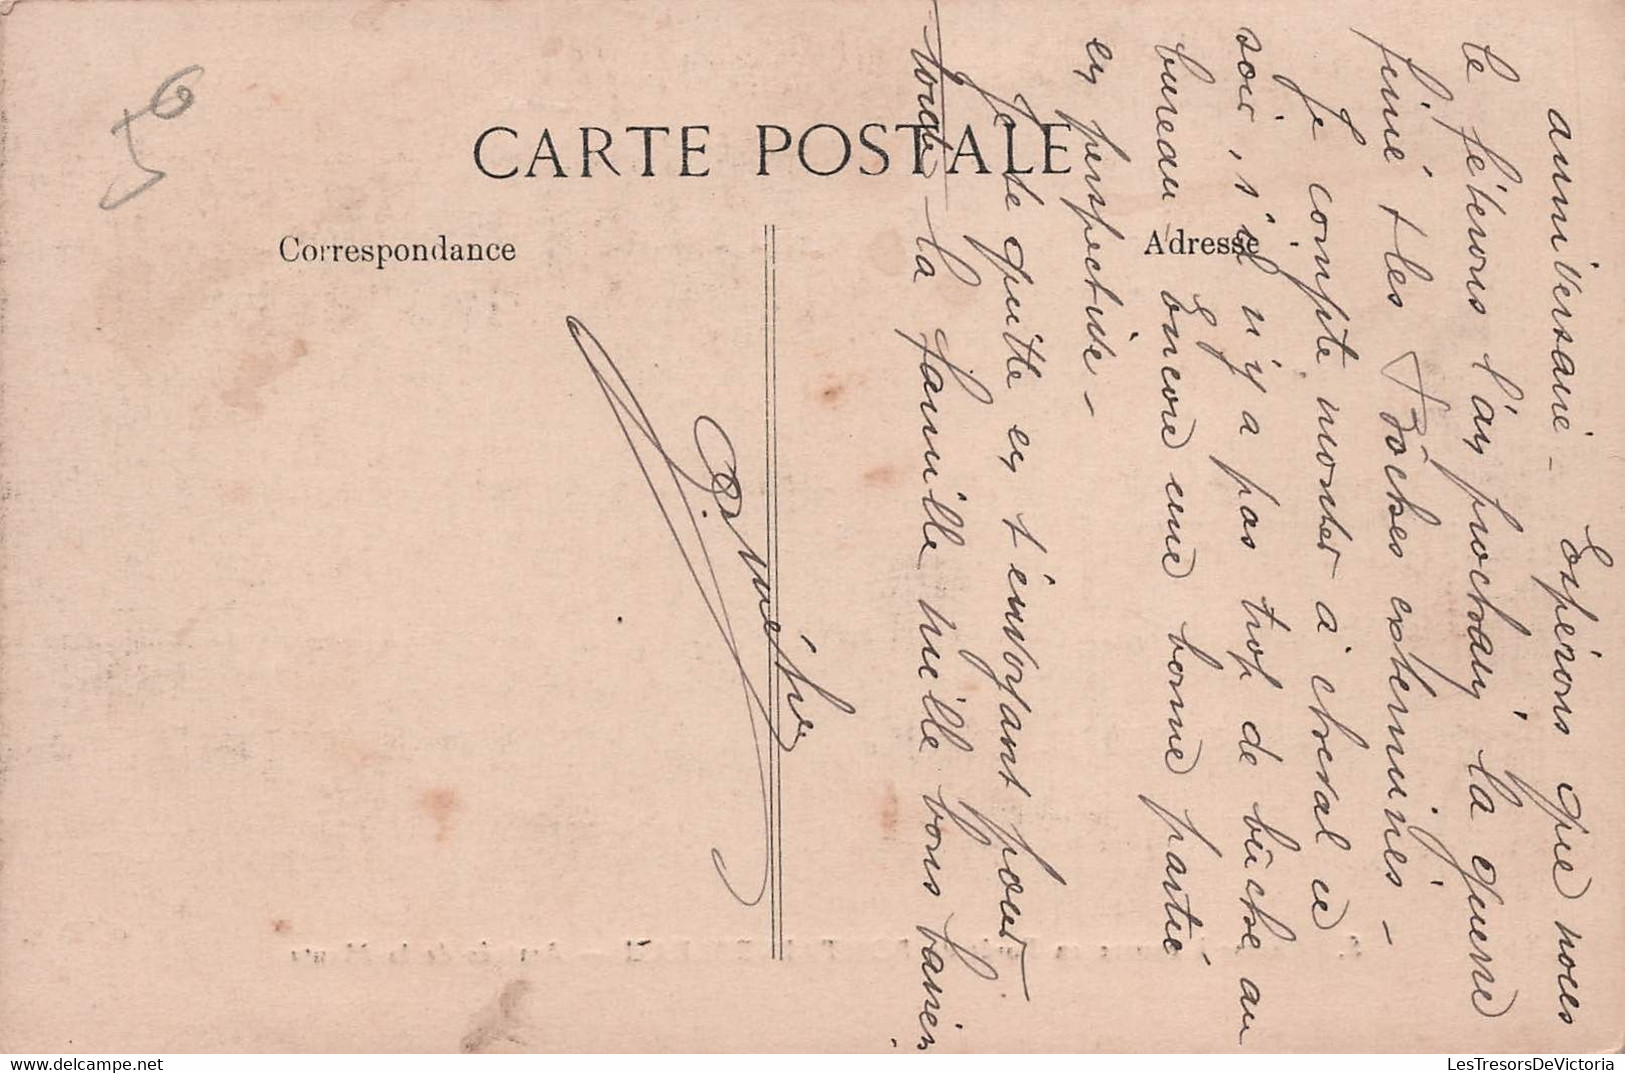 56
CARTE POSTALE
Correspondance
Adresse
anniversaire - Espérons que nous
le fêterons l'an prochain, la guerre
finie & les Boches exterminés -
Je compte monter à cheval ce
soir, s'il n'y a pas trop de bûche au
bureau Encore une bonne partie
en perspective -
Je te quitte en t'envoyant pour
toute la famille mille bons baisers
LesTresorsDeVictoria